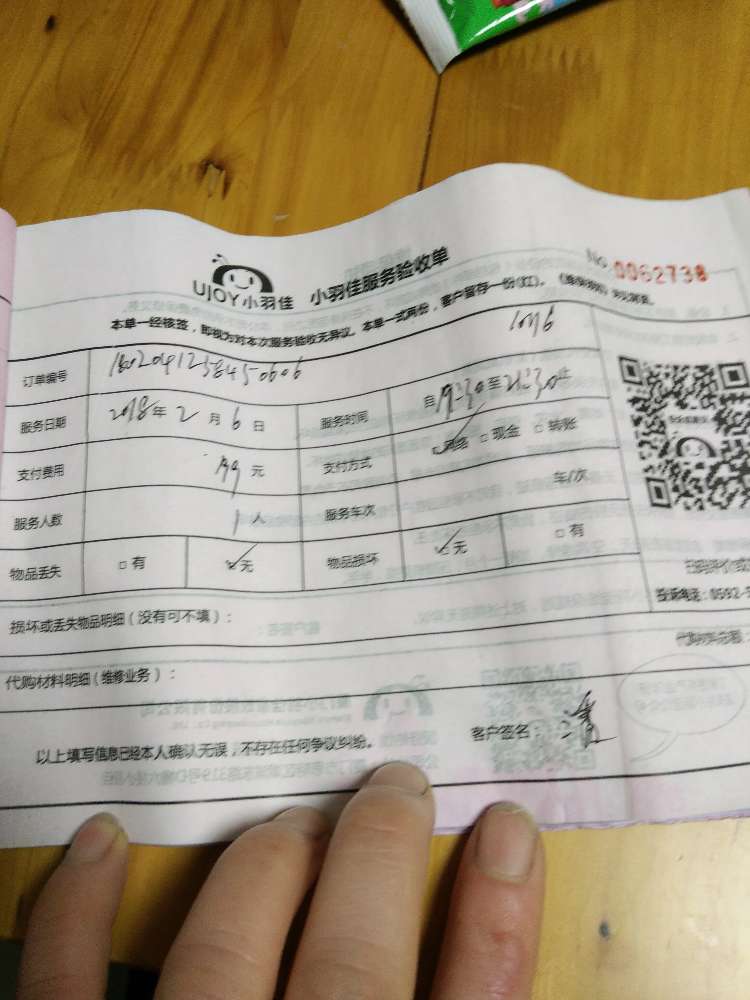 UJOY小羽佳 小羽佳服务验收单 No 0062738
本单一经核签,即视为对本次服务验收无异议。本单一式两份,客户留存一份(红)。
订单编号
服务日期 2018年2月6日 服务时间 自19:30至21:30止
支付费用 99元 支付方式 网络 □现金 □转账
服务人数 1人 服务车次 车/次
物品丢失 □有 ☑无 物品损坏 ☑无 □有
损坏或丢失物品明细(没有可不填):
投诉电话:0592-
代购材料明细(维修业务): 代购材料总额:
以上填写信息已经本人确认无误,不存在任何争议纠纷。 客户签名: